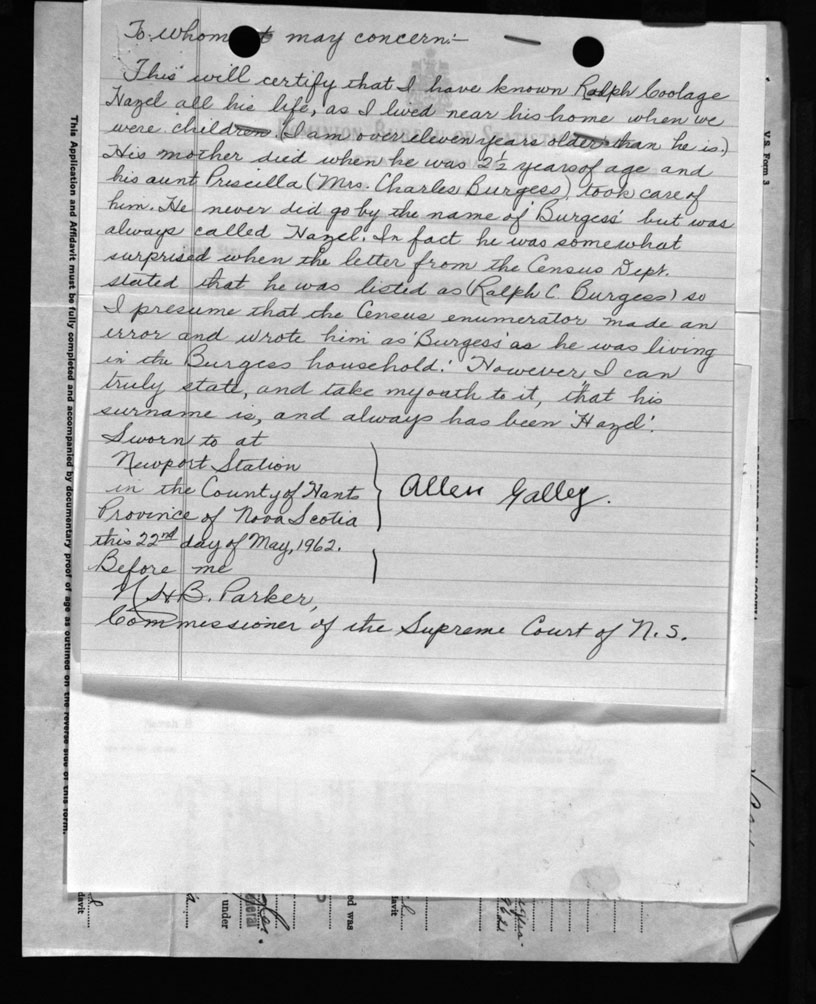 To whom it may concern:-
This will certify that I have known Ralph Coolage
Hazel all his life, as I lived near his home when we
were children (I am over eleven years older than he is.)
His mother died when he was 2½ years of age and
his aunt Priscilla (Mrs. Charles Burgess) took care of
him. He never did go by the name of 'Burgess' but was
always called Hazel. In fact he was somewhat
surprised when the letter from the Census Dept.
stated that he was listed as (Ralph C. Burgess) so
I presume that the Census enumerator made an
error and wrote him as 'Burgess' as he was living
in the Burgess household. However I can
truly state, and take my oath to it, that his
surname is, and always has been 'Hazel'.
Sworn to at
Newport Station
in the County of Hants
Province of Nova Scotia
this 22nd day of May, 1962.
Allen Galley.
Before me
B. Parker,
Commissioner of the Supreme Court of N.S.
This Application and Affidavit must be fully completed and accompanied by documentary proof of age as outlined on the reverse side of this form.
V.S. Form 3
under
ed was